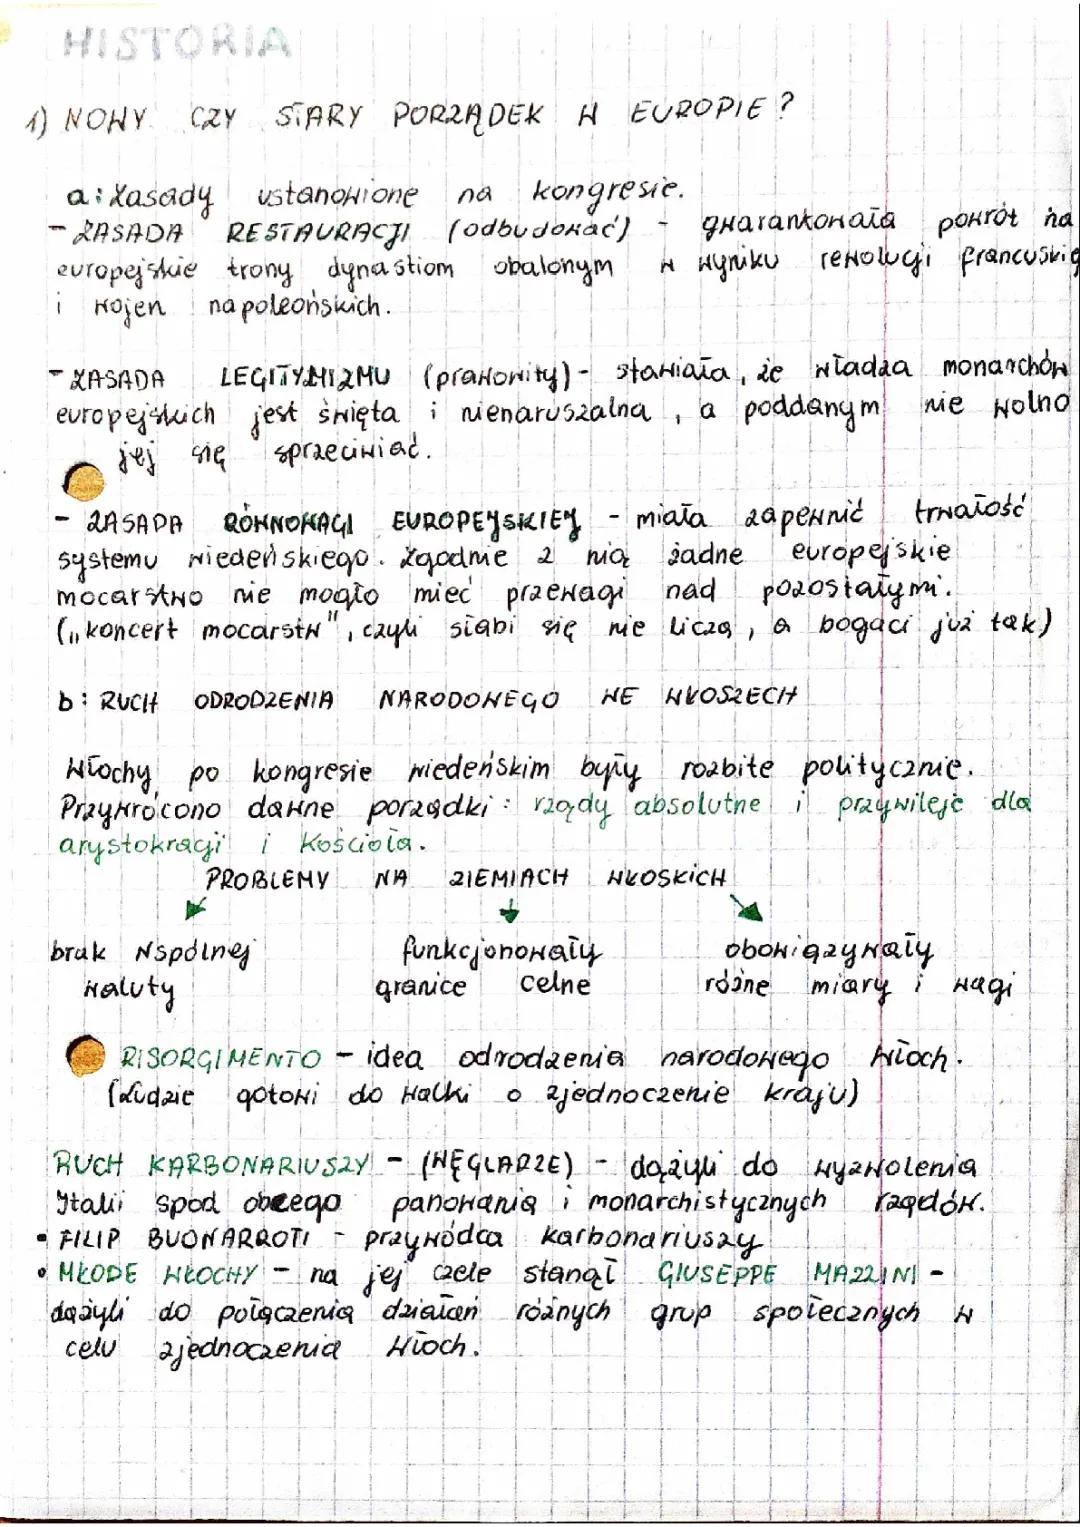 HISTORIA
1) NOWY CZY STARY PORZĄDEK W EUROPIE?
a: Zasady ustanowione na kongresie.
- ZASADA RESTAURACJI (odbudować) - gwarantowała powrót na
europejskie trony dynastiom obalonym w wyniku rewolucji francuskie
i wojen napoleońskich.
- ZASADA LEGITYMIZMU (prawowity) - stawiała, że władza monarchów
europejskich jest święta i nienaruszalna, a poddanym nie wolno
jej się sprzeciwiać.
- ZASADA RÓWNOWAGI EUROPEJSKIEJ - miała zapewnić trwałość
systemu wiedeńskiego. Zgodnie z nią żadne europejskie
mocarstwo nie mogło mieć przewagi nad pozostałymi.
(„koncert mocarstw", czyli słabi się nie liczą, a bogaci już tak)
b: RUCH ODRODZENIA NARODOWEGO WE WŁOSZECH
Włochy po kongresie wiedeńskim były rozbite politycznie.
Przywrócono dawne porządki: rządy absolutne i przywileje dla
arystokracji i Kościoła.
PROBLEMY NA ZIEMIACH WŁOSKICH
brak wspólnej funkcjonowały obowiązywały
waluty granice celne różne miary i wagi
RISORGIMENTO - idea odrodzenia narodowego Włoch.
(Ludzie gotowi do walki o zjednoczenie kraju)
RUCH KARBONARIUSZY - (WĘGLARZE) - dążyli do wyzwolenia
Italii spod obcego panowania i monarchistycznych rządów.
• FILIP BUONARROTI - przywódca karbonariuszy
• MŁODE WŁOCHY - na jej czele stanął GIUSEPPE MAZZINI -
dążyli do połączenia działań różnych grup społecznych w
celu zjednoczenia Włoch.